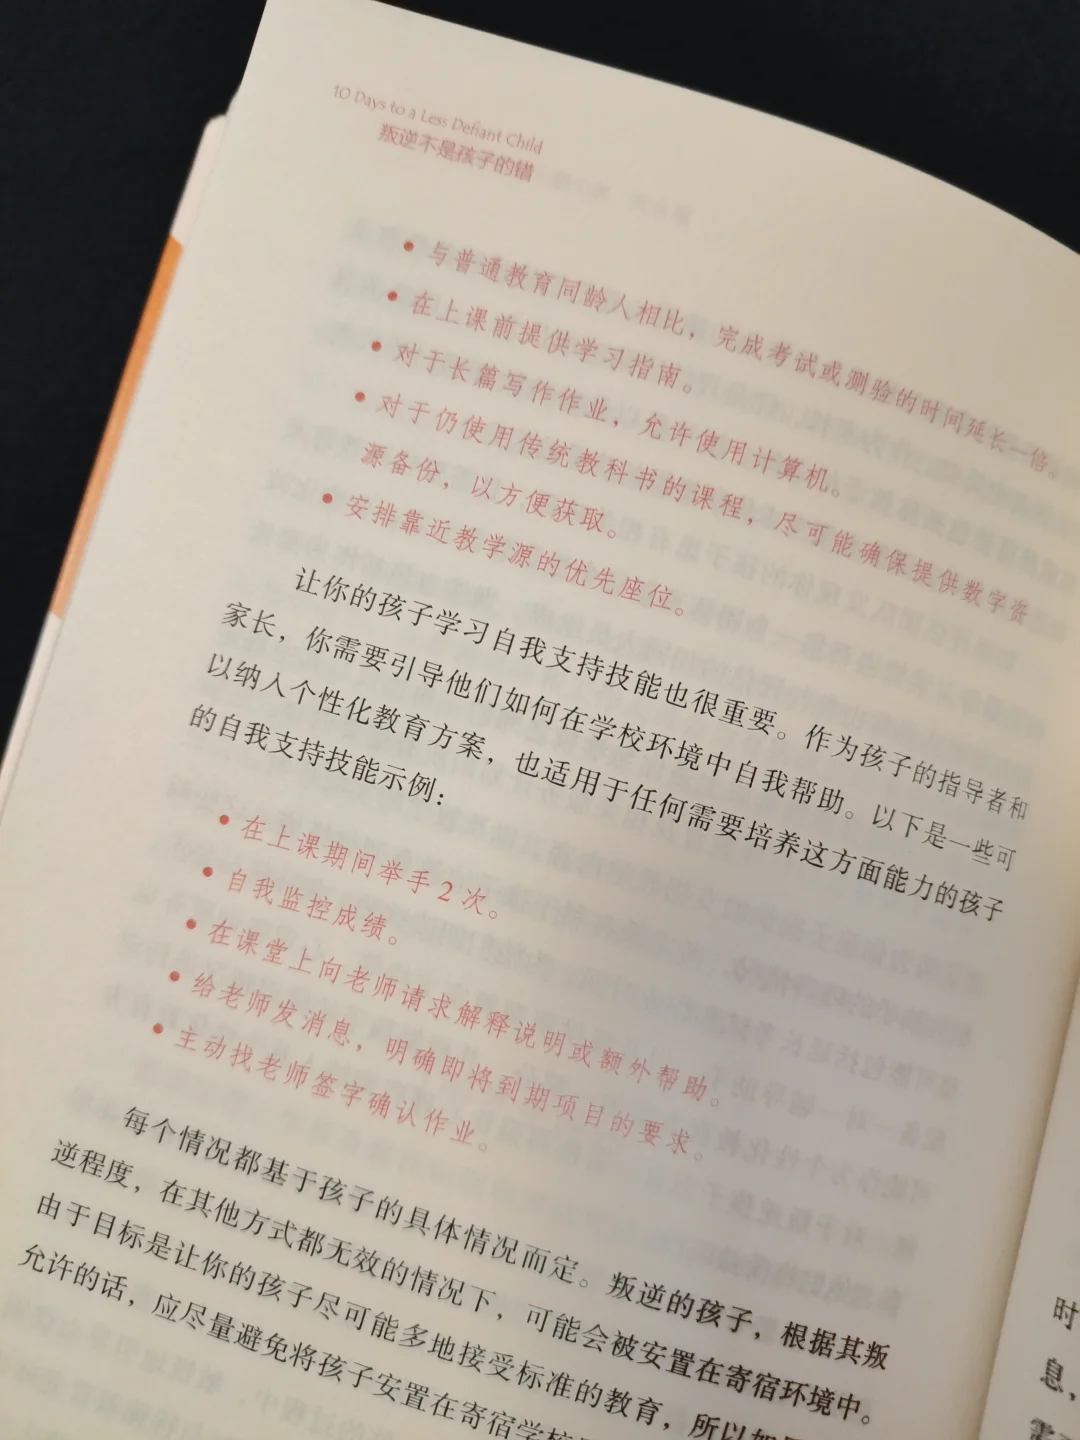 10 Days to a Less Defiant Child
叛逆不是孩子的错
• 与普通教育同龄人相比，完成考试或测验的时间延长一倍。
• 在上课前提供学习指南。
• 对于长篇写作作业，允许使用计算机。
• 对于仍使用传统教科书的课程，尽可能确保提供数字资
源备份，以方便获取。
• 安排靠近教学源的优先座位。
让你的孩子学习自我支持技能也很重要。作为孩子的指导者和
家长，你需要引导他们如何在学校环境中自我帮助。以下是一些可
以纳入个性化教育方案，也适用于任何需要培养这方面能力的孩子
的自我支持技能示例：
• 在上课期间举手 2 次。
• 自我监控成绩。
• 在课堂上向老师请求解释说明或额外帮助。
• 给老师发消息，明确即将到期项目的要求。
• 主动找老师签字确认作业。
每个情况都基于孩子的具体情况而定。叛逆的孩子，根据其叛
逆程度，在其他方式都无效的情况下，可能会被安置在寄宿环境中。
由于目标是让你的孩子尽可能多地接受标准的教育，所以如
允许的话，应尽量避免将孩子安置在寄宿学校
时
息，